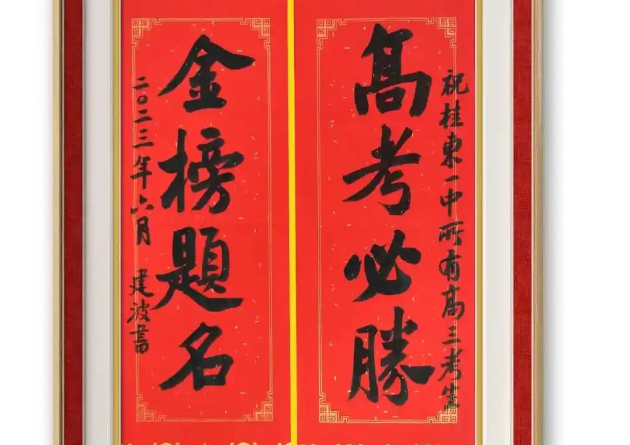 祝桂東一中所有高三考生
髙考必勝
金榜題名
二〇二三年六月 建波書